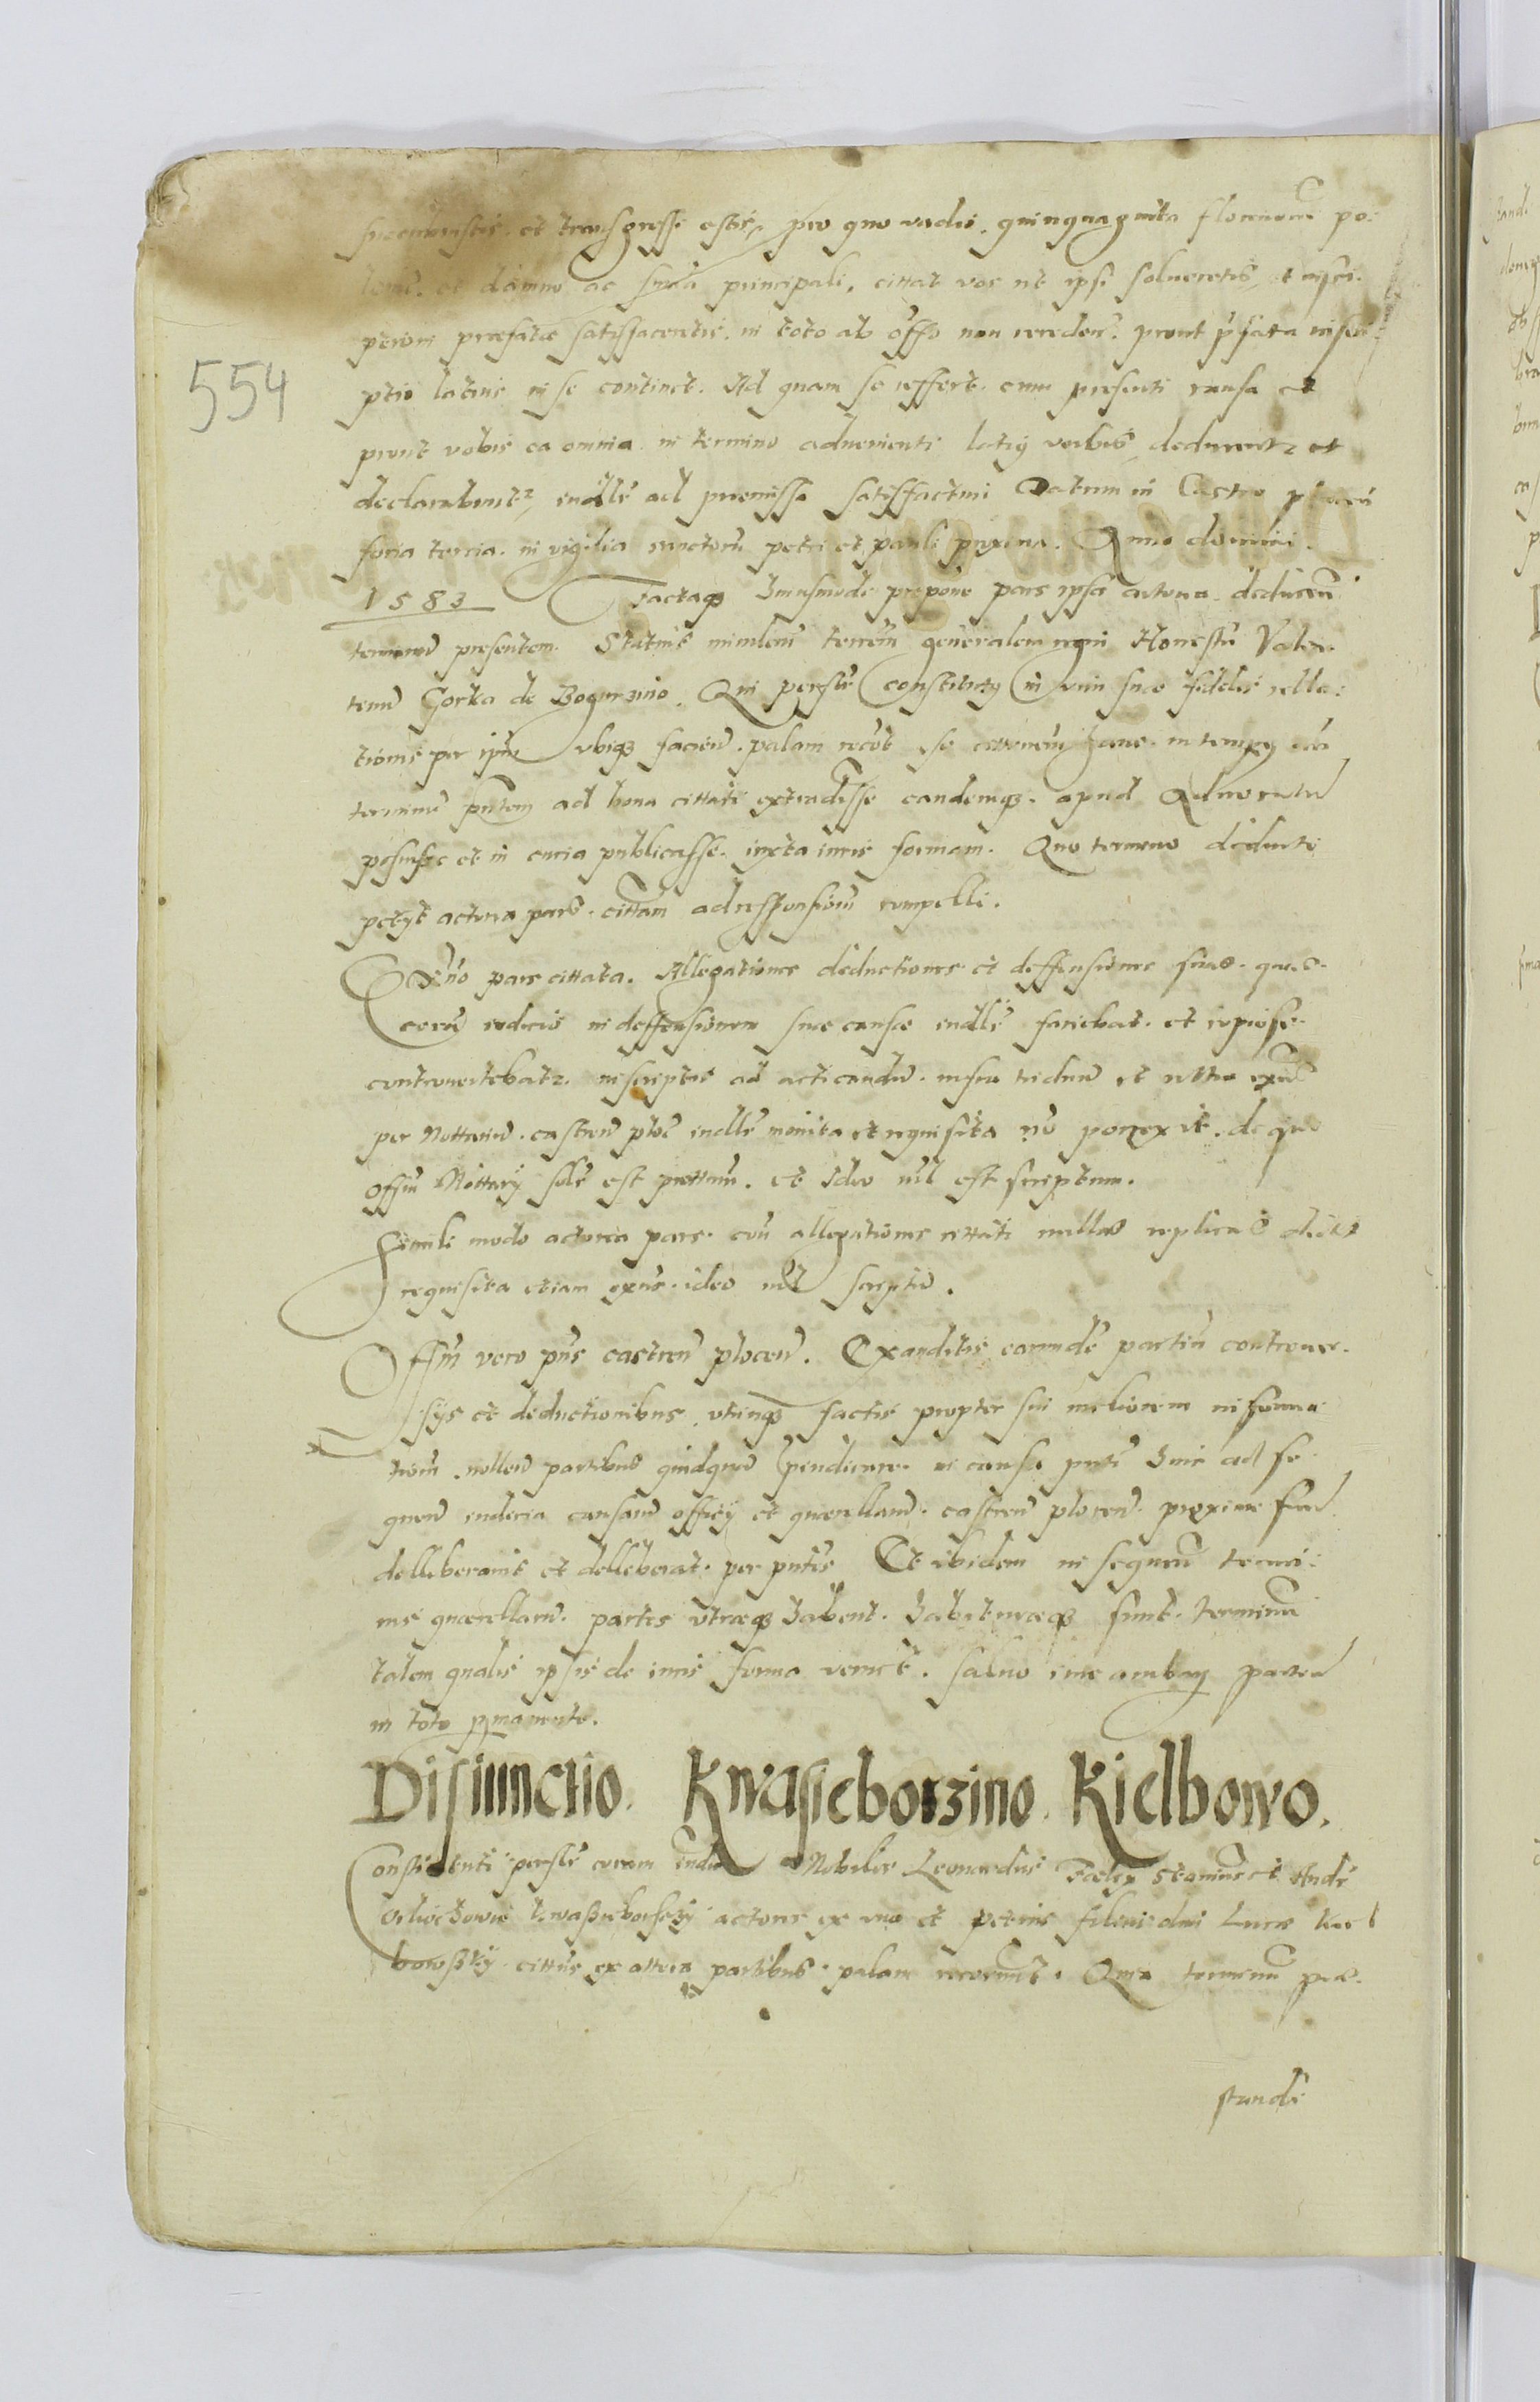 succubuistis et transgressi estis, pro quo vadio quinquaginta florenorum po-
et damno ac suma principali, cittat vos ut ipsi solueretis, et inscri-
ptioni præfatæ satisfaceretis in toto ab offo non receden. prout pfata inscri-
ptio latius in se continet. Ad quam se reffert. cum presenti causa et
prout vobis ea omnia in termino aduenienti latiy verbis deducentr et
declarabuntr, iudlr ad premissa satisfacturi Datum in Castro plocen
feria tercia in vigilia sanctoru petri et pauli proxima. Anno domini.
1583 Factaq huiusmodi propoñe pars ipsa actorea deducen
terminu presentem. Statuit ministeru terrem generalem regni Honestu Valen-
tinu Gorka de Bogurzino. Qui perslr constituty in vim suæ fidelis rella-
tionis per ipm ubiq faciend. palam recot se in
terminu pntem ad bona cittati extradisse eandemq. apud Aduocatu
posuisse et in curia publicasse iuxta iuris formam. Quo termino deducto
petyt actorea pars cittam ad responsionem compelli.
Ex vo pars cittata. Allegationes deductiones et deffensiones suas quas
coram iudicio in deffensionem suæ causæ iudlr faciebat et copiose
controuertebatr. inscriptis ad acticandu infra triduu et ultra
per Nottariu castren ploc iudlr monita et requisita no porrexit. de quo
offm Nottarij solr est prottum. et ideo nil est scriptum.
Simili modo actorea pars con allegationes cittati nullas replicas dedit
requisita etiam exns ideo nil scriptu.
Offm vero pns castren plocen. Exauditis earunde partiu controuer-
sijs et deductionibus utrinq factis propter sui meliorem informa-
tiom nollen partibus quidquid in causa pnti huic ad se-
quen iudicia causaru officij et querellaru castren plocen proxime
delliberauit et delliberat per pntes Et ibidem in sequen termi-
nis quærellaru partes utræq habent. habituræq sunt terminu
talem qualis ipsis de iuris forma veniet. saluo iure ambay partiu
in toto pmanente.
Disiunctio. Kwasieborzino. Kielbowo.
Constituti perslr coram iudo Nobiles Leonardus Fælix Stanus et Andr
actores ex una et petrus filius dni Lucæ Kiel
bowsky cittus ex altera partibus palam recorunt. Quia terminu præ-
standi
554